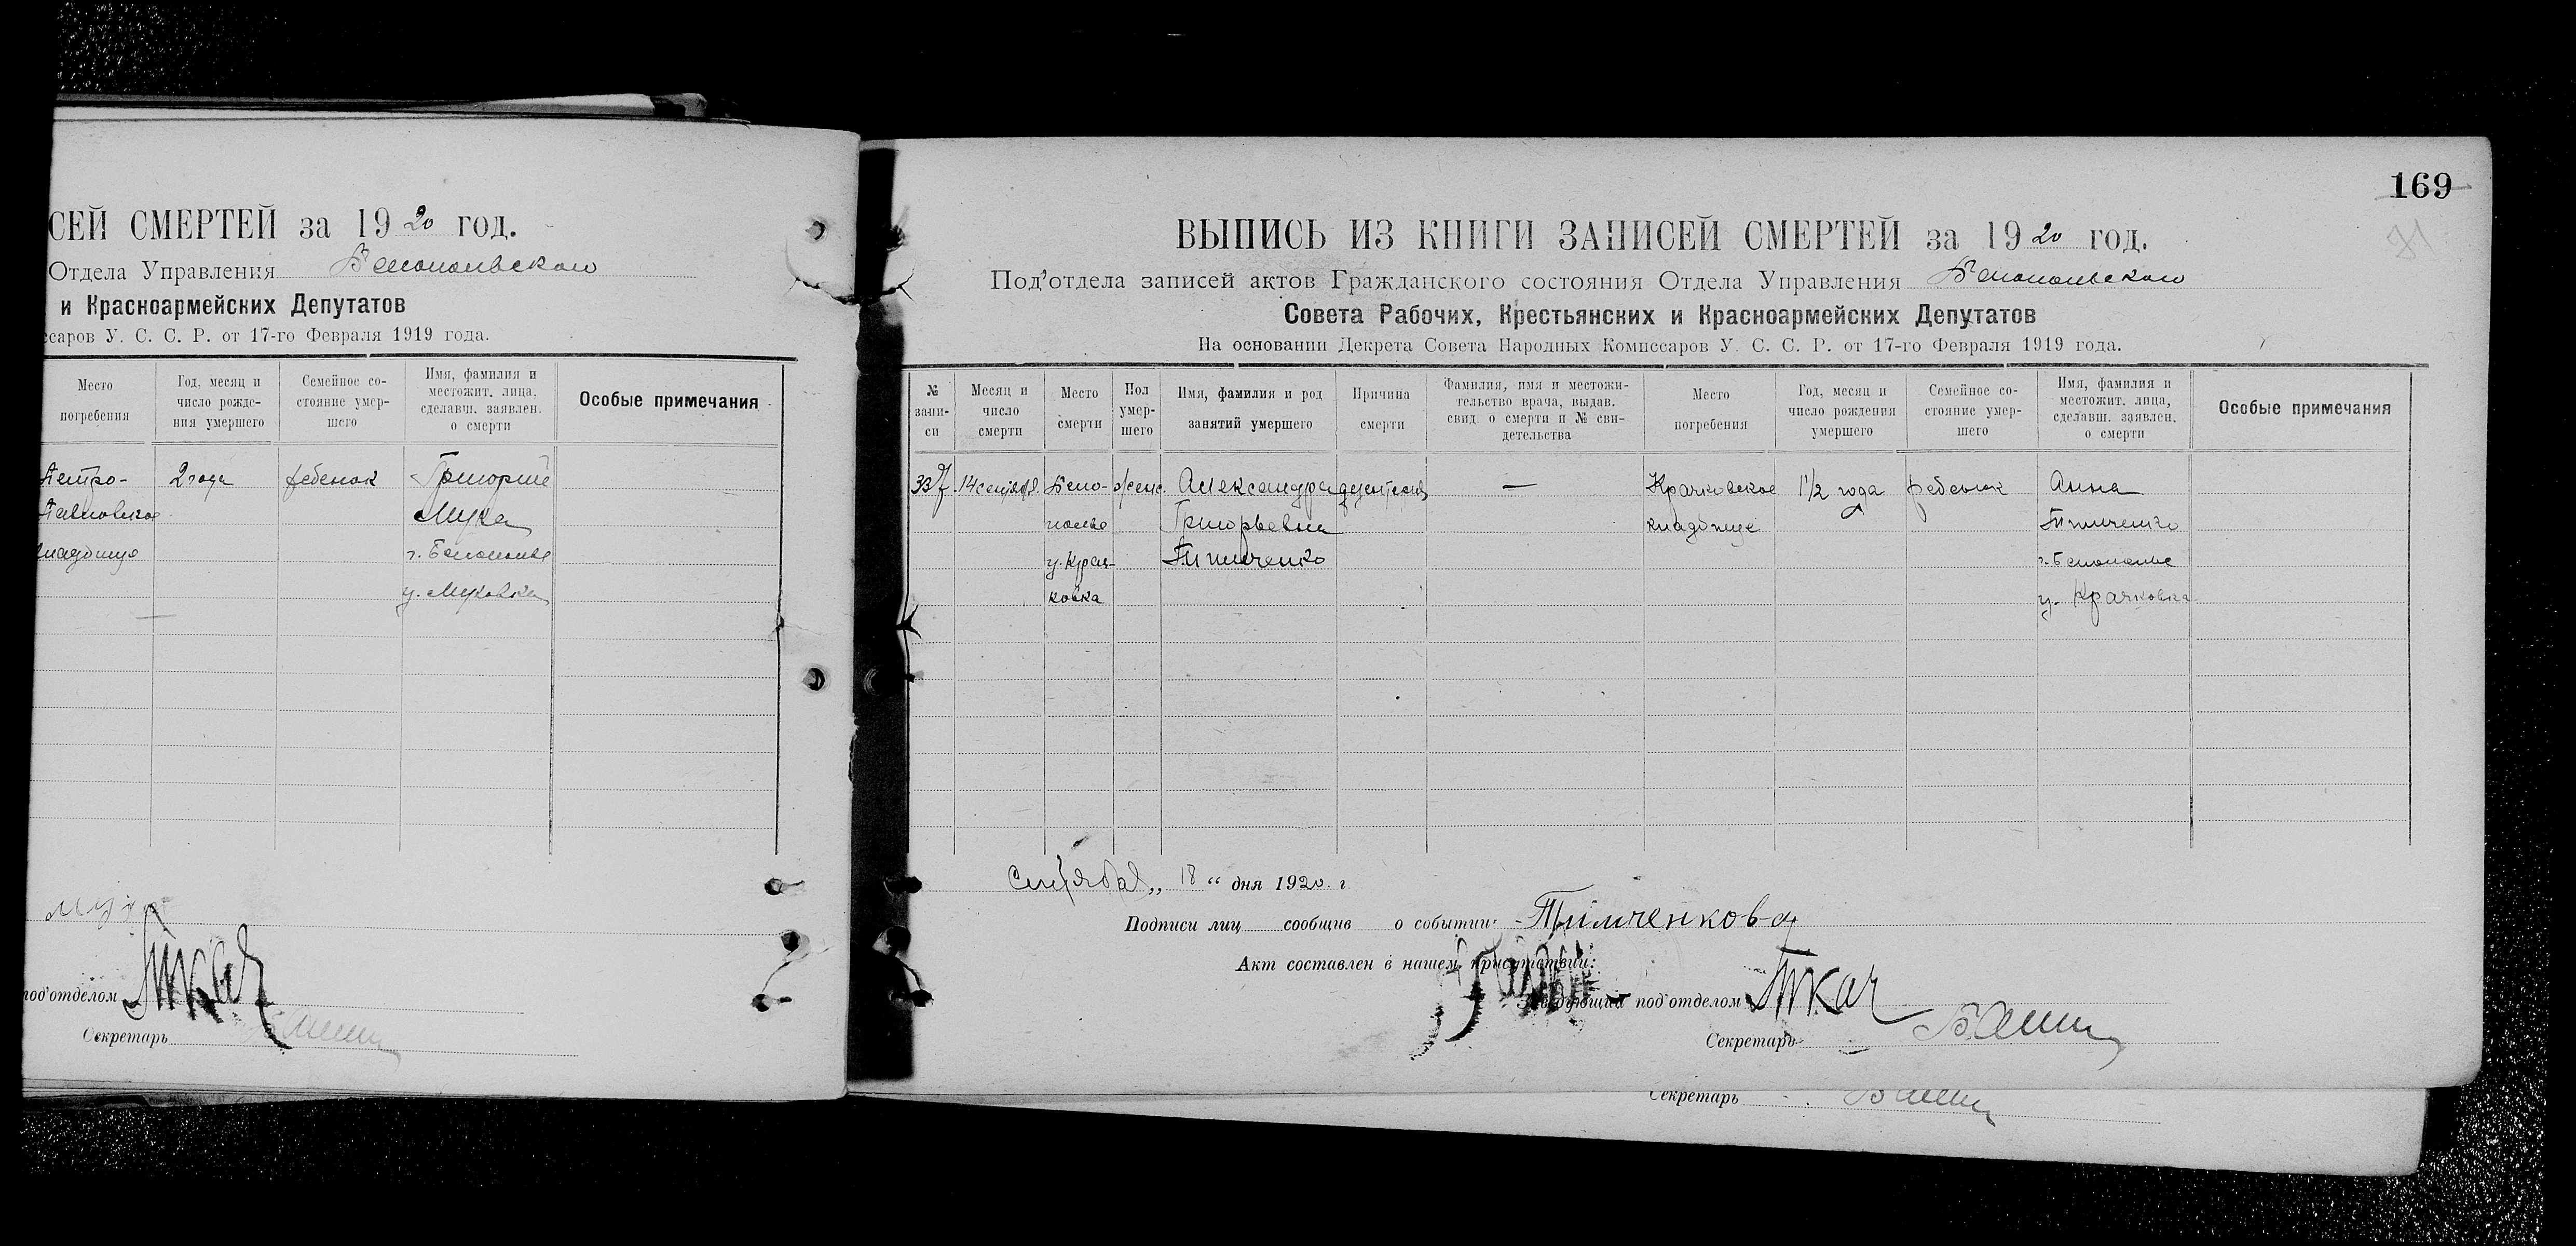 СЕЙ СМЕРТЕЙ за 1920 год.
Отдела Управления Белопольского
и Красноармейских Депутатов
ссаров У. С. С. Р. от 17-го Февраля 1919 года.
Место погребения
Год, месяц и число рожде-ния умершего
Семейное со-стояние умер-шего
Имя, фамилия и местожит. лица, сделавш. заявлен. о смерти
Особые примечания
Петро-
Павловское
кладбище
2 года
ребенок
Григорий
Мука
г. Белополье
у. Муковка
под'отделом Ткач
Секретарь
169
ВЫПИСЬ ИЗ КНИГИ ЗАПИСЕЙ СМЕРТЕЙ за 1920 год.
Под'отдела записей актов Гражданского состояния Отдела Управления Белопольского
Совета Рабочих, Крестьянских и Красноармейских Депутатов
На основании Декрета Совета Народных Комиссаров У. С. С. Р. от 17-го Февраля 1919 года.
№ запи-си
Месяц и число смерти
Место смерти
Пол умер-шего
Имя, фамилия и род занятий умершего
Причина смерти
Фамилия, имя и местожи-тельство врача, выдав. свид. о смерти и № сви-детельства
Место погребения
Год, месяц и число рождения умершего
Семейное со-стояние умер-шего
Имя, фамилия и местожит. лица, сделавш. заявлен. о смерти
Особые примечания
337
14 сентября
Бело-
полье
у. Крач-
ковка
женс.
Александра
Григорьевна
Тимченко
дизентерия
—
Крачковское
кладбище
1½ года
ребенок
Анна
Тимченко
г. Белополье
у. Крачковка
Сентября „ 18 “ дня 1920 г
Подписи лиц сообщив о событии: Тимченкова
Акт составлен в нашем присутствии:
Заведующий под'отделом Ткач
Секретарь
Секретарь